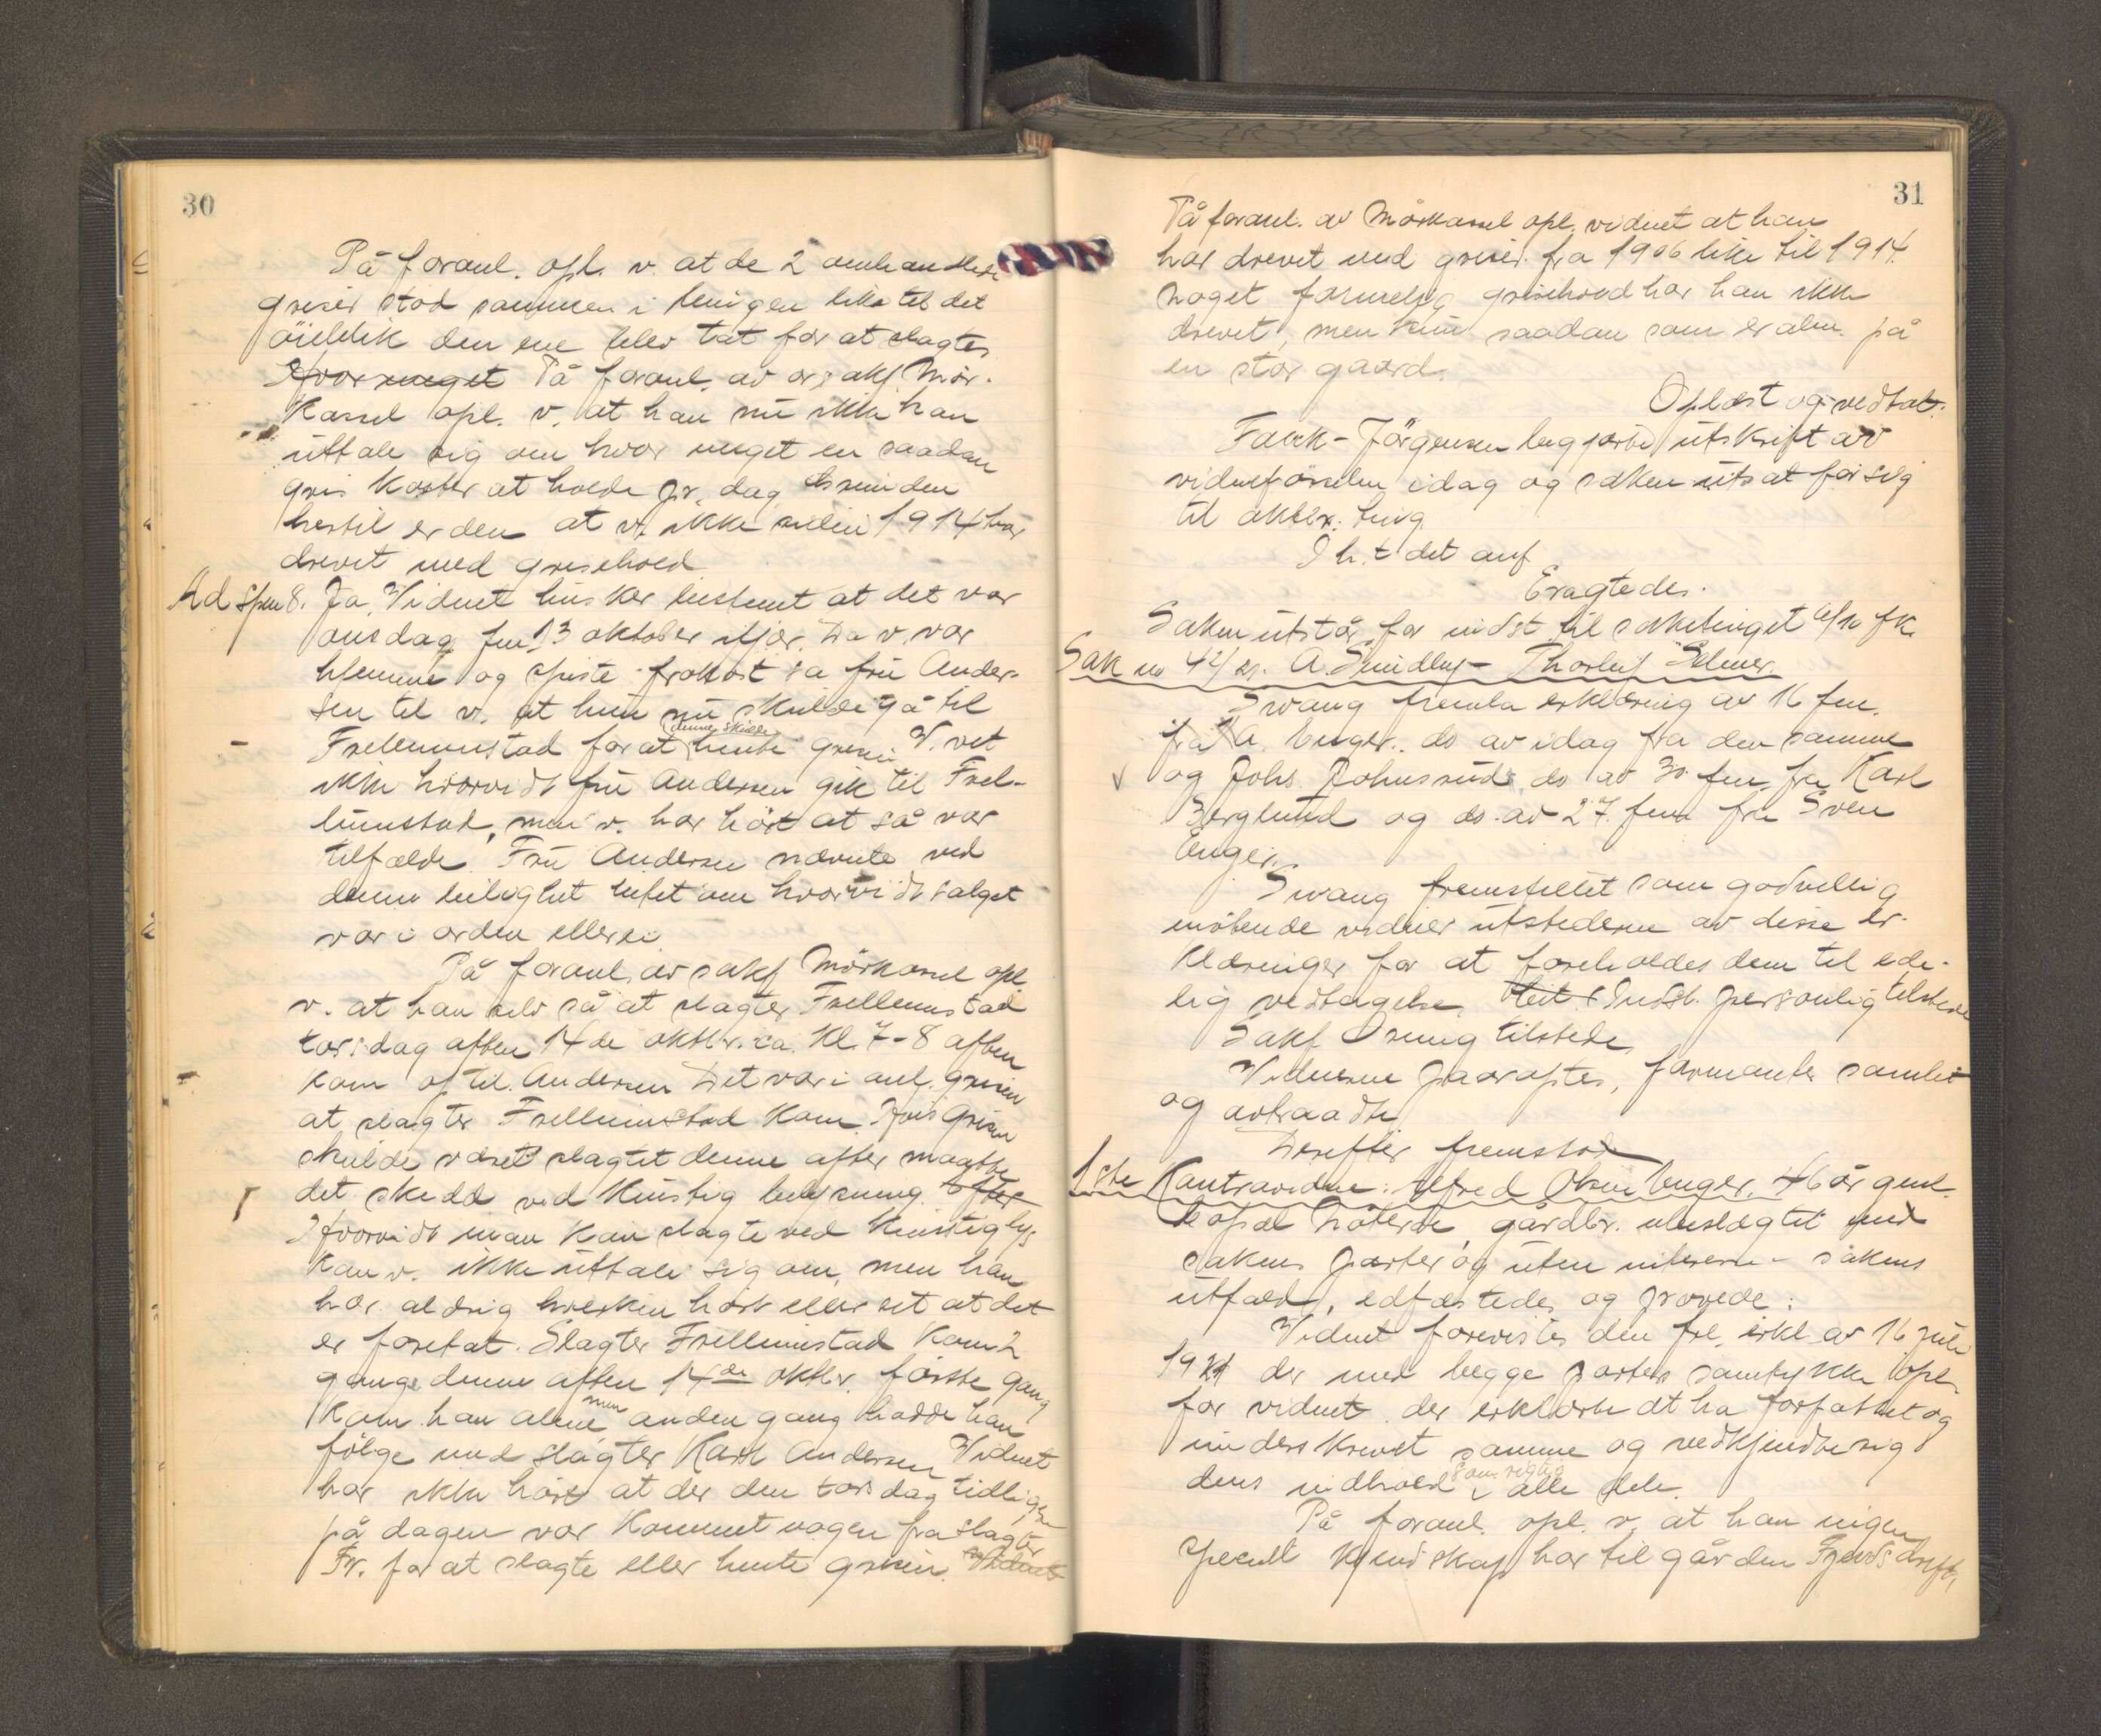 30
På foranl. opl. v. at de 2 omhandlede
griser stod sammen i bingen like til det
öieblik den ene blev tat for at slagtes
Hvor meget På foranl. av o.r.sakf. Mör-
kassel opl. v. at han nu ikke kan
uttale sig om hvor meget en saadan
gris koster at holde pr. dag. Grunden
hertil er den at v. ikke siden 1914 har
drevet med grisehold.
Ad Spm 8. Ja, Vidnet husker bestemt at det var
onsdag fm 13 oktober ifjor. Da v. var
hjemme og spiste frokost sa fru Ander-
sen til v. at hun nu skulde gå til
Frellumstad for at denne skulde hente grisen. V. vet
ikke hvorvidt fru Andersen gik til Frel-
lumstad, men v. har hört at så var
tilfælde. Fru Andersen nævnte ved
denne leilighet intet om hvorvidt salget
var i orden eller ei.
På foranl. av sakf Mörkassel opl
v. at han selv så at slagter Frellumstad
torsdag aften 14de oktbr. ca. kl. 7-8 aften
kom op til Andersen. Det var i anl. grisen
at slagter Frellumstad kom. Hvis grisen
skulde været slagtet denne aften maatte
det skedd ved kunstig belysning.
Hvorvidt man kan slagte ved kunstig lys
kan v. ikke uttale sig om, men han
har aldrig hverken hört eller set at det
er foretat. Slagter Frellumstad kom 2
gange denne aften 14de oktbr. förste gang
kom han alene men anden gang hadde han
fölge med slagter Karl Andersen. Vidnet
har ikke hört at der den torsdag tidligere
på dagen var kommet vogen fra slagter
Fr. for at slagte eller hente grisen. Vidnet
31
På foranl. av Mörkassel opl. vidnet at han
har drevet med griser fra 1906 like til 1914.
Noget formelig grisehold har han ikke
drevet, men kun saadan som er alm. på
en stor gaard.
Oplæst og vedtat.
Fauck-Jörgensen begjærte utskrift av
vidneförselen idag og saken utsat for sig
til oktbr. ting.
I h. t. det anf.
Eragtedes.
Saken utstår for indst. til saketinget 6/10 fk.
Sak no 42/21. A. Smidby - Thorleif Selmer.
Svang fremla erklæring av 16 fm.
fra A. Unger. do av idag fra den samme
og Johs. Johnsrud do av 30 fm. fra Karl
Berglund og do. av 27. fm fra Sven
Enger.
Svang fremstillet som godvillig
mötende vidner utstederne av disse er-
klæringer for at foreholdes dem til ede-
lig vedtagelse. Indst. personlig tilstede
Sakf tilstede
Vidnerne paaroptes, formantes samlet
og avtraadte.
Derefter fremstod
1ste Kontravidne: Alfred Unger. 46 år gml.
bopæl gårdbr. ubeslægtet med
sakens parter og uten interesse i sakens
utfald, edfæstedes og prøvede:
Vidnet forevistes den frl. erkl av 16 juli
1921 der med begge parters samtykke opl.
for vidnet. der erklærte at ha forfattet og
underskrevet samme og vedkjendte sig
dens indhold som rigtig i alle dele.
På foranl. opl. v. at han ingen
specielt kjendskap har til gården drift,